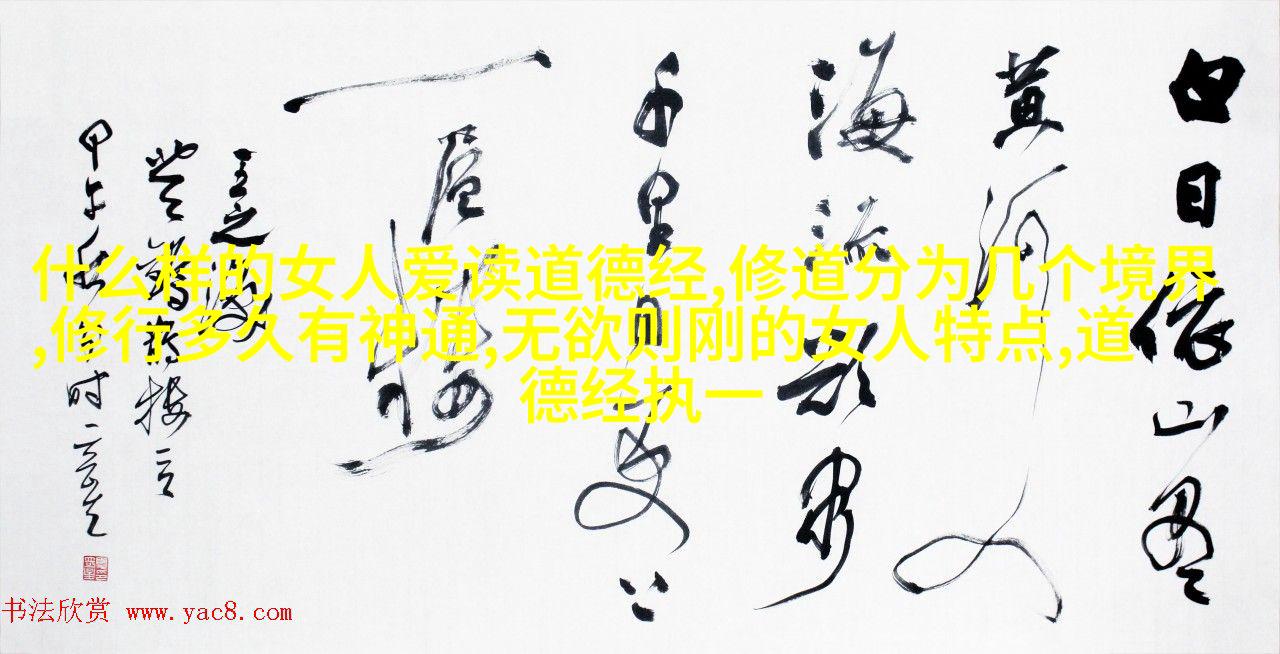 什么样的女人爱读道德经,修道分为几个境界
,修行多久有神通,无欲则刚的女人特点,道
德经执一
白日依山尽
黄河入
海流欲穷
千里目更上
一层楼
王之涣
登鹳雀楼
甲午秋
书法欣赏 www.yac8.com